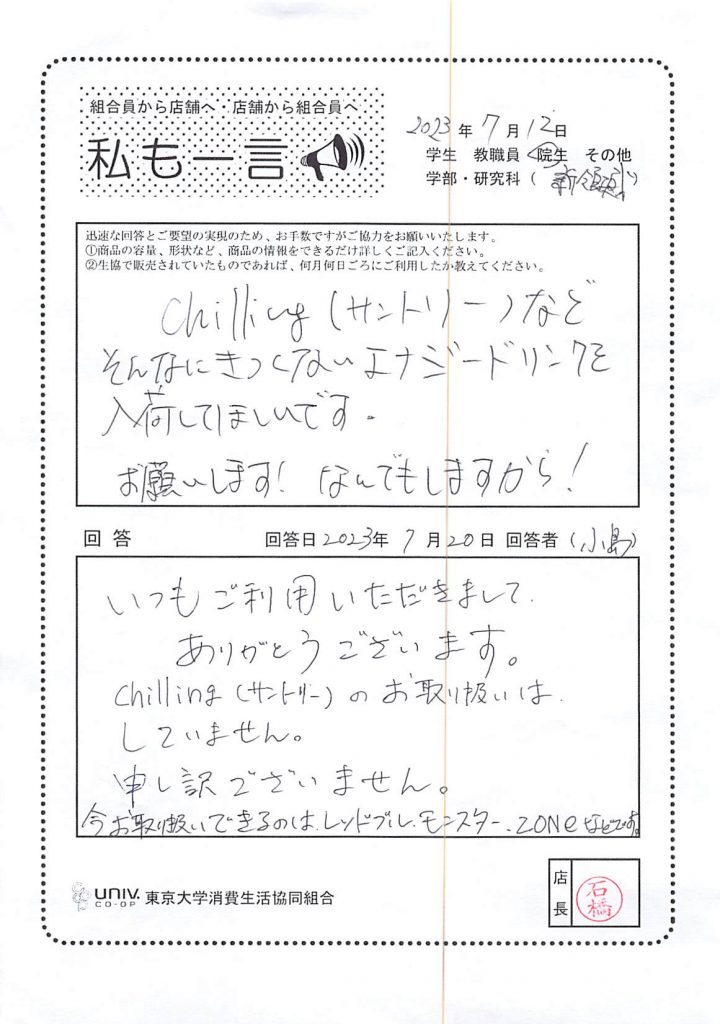 組合員から店舗へ 店舗から組合員へ
私も一言
2023年7月12日
学生 教職員 院生 その他
学部・研究科(新領域)
迅速な回答とご要望の実現のため、お手数ですがご協力をお願いいたします。
①商品の容量、形状など、商品の情報をできるだけ詳しくご記入ください。
②生協で販売されていたものであれば、何月何日ごろにご利用したか教えてください。
Chilling(サントリー)など
そんなにきつくないエナジードリンクを
入荷してほしいです.
お願いします! なんでもしますから!
回答 回答日2023年7月20日 回答者(小島)
いつもご利用いただきまして.
ありがとうございます。
Chilling(サントリー)のお取り扱いは.
していません。
申し訳ございません。
今お取り扱いできるのは.レッドブル.モンスター.ZONeなどです。
UNIV.
CO-OP
東京大学消費生活協同組合
店長
石橋